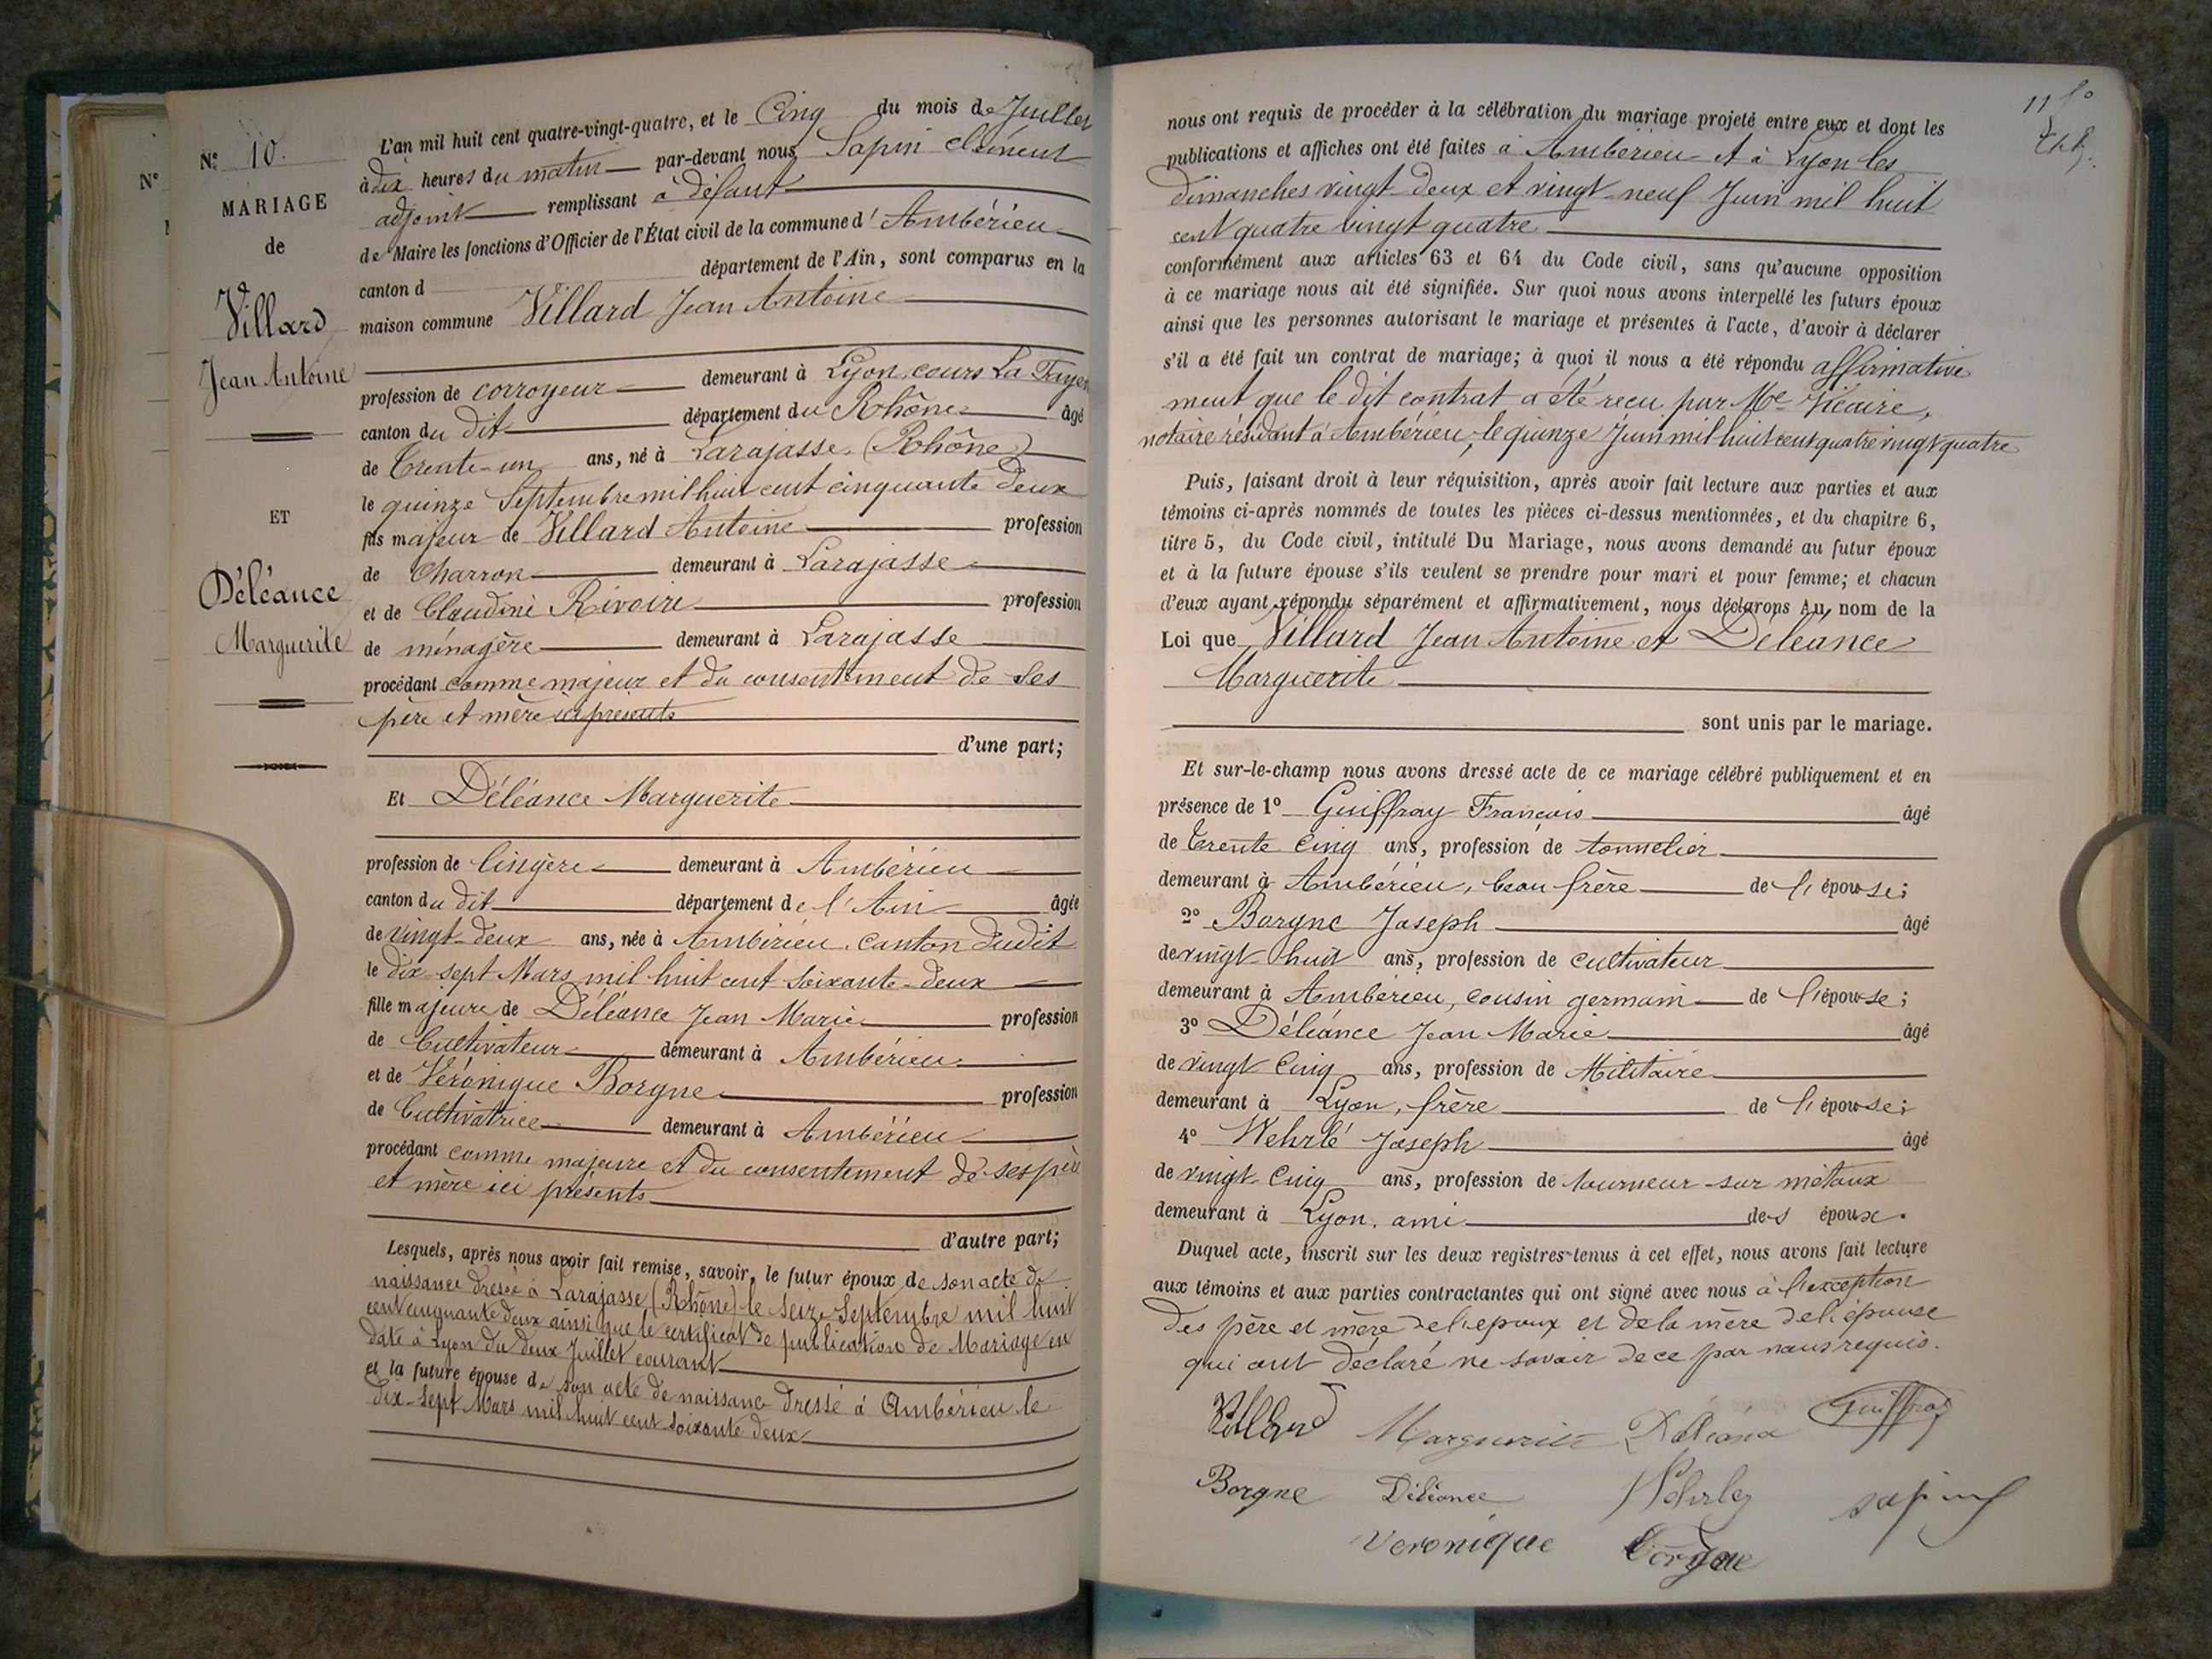 Nº 10.
MARIAGE
de
Villard
Jean Antoine
ET
Déléance
Marguerite
L'an mil huit cent quatre-vingt-quatre, et le Cinq du mois de Juillet
à dix heures du matin par-devant nous Sapin Clément
adjoint remplissant à défaut
de Maire les fonctions d'Officier de l'État civil de la commune d'Ambérieu
canton d département de l'Ain, sont comparus en la
maison commune Villard Jean Antoine
profession de corroyeur demeurant à Lyon, cours La Fayet
canton du dit département du Rhône âgé
de Trente-un ans, né à Larajasse (Rhône)
le quinze Septembre mil huit cent cinquante deux
fils majeur de Villard Antoine profession
de Charron demeurant à Larajasse
et de Claudine Rivoire profession
de ménagère demeurant à Larajasse
procédant comme majeur et du consentement de ses
père et mère ici présents
d'une part;
Et Déléance Marguerite
profession de lingère demeurant à Ambérieu
canton du dit département de l'Ain âgée
de vingt-deux ans, née à Ambérieu, canton dudit
le dix-sept Mars mil huit cent soixante-deux
fille majeure de Déléance Jean Marie profession
de Cultivateur demeurant à Ambérieu
et de Véronique Borgne profession
de Cultivatrice demeurant à Ambérieu
procédant comme majeure et du consentement de ses père
et mère ici présents
d'autre part;
Lesquels, après nous avoir fait remise, savoir, le futur époux de son acte de
naissance dressé à Larajasse (Rhône) le seize Septembre mil huit
cent cinquante deux ainsi que le certificat de publication de Mariage en
date à Lyon du deux Juillet courant
et la future épouse de son acte de naissance dressé à Ambérieu le
dix-sept Mars mil huit cent soixante deux
Nº
11
nous ont requis de procéder à la célébration du mariage projeté entre eux et dont les
publications et affiches ont été faites à Ambérieu et à Lyon les
dimanches vingt-deux et vingt-neuf Juin mil huit
cent quatre vingt quatre
conformément aux articles 63 et 64 du Code civil, sans qu'aucune opposition
à ce mariage nous ait été signifiée. Sur quoi nous avons interpellé les futurs époux
ainsi que les personnes autorisant le mariage et présentes à l'acte, d'avoir à déclarer
s'il a été fait un contrat de mariage; à quoi il nous a été répondu affirmative
ment que le dit contrat a été reçu par Me Vicaire,
notaire résidant à Ambérieu, le quinze Juin mil huit cent quatre vingt quatre
Puis, faisant droit à leur réquisition, après avoir fait lecture aux parties et aux
témoins ci-après nommés de toutes les pièces ci-dessus mentionnées, et du chapitre 6,
titre 5, du Code civil, intitulé Du Mariage, nous avons demandé au futur époux
et à la future épouse s'ils veulent se prendre pour mari et pour femme; et chacun
d'eux ayant répondu séparément et affirmativement, nous déclarons Au nom de la
Loi que Villard Jean Antoine et Déléance
Marguerite
sont unis par le mariage.
Et sur-le-champ nous avons dressé acte de ce mariage célébré publiquement et en
présence de 1º Guiffray François âgé
de Trente Cinq ans, profession de tonnelier
demeurant à Ambérieu, beau frère de l'épouse;
2º Borgne Joseph âgé
de vingt huit ans, profession de cultivateur
demeurant à Ambérieu, cousin germain de l'épouse;
3º Déléance Jean Marie âgé
de vingt Cinq ans, profession de Militaire
demeurant à Lyon, frère de l'épouse;
4º Wehrlé Joseph âgé
de vingt-Cinq ans, profession de tourneur sur métaux
demeurant à Lyon, ami des époux.
Duquel acte, inscrit sur les deux registres tenus à cet effet, nous avons fait lecture
aux témoins et aux parties contractantes qui ont signé avec nous à l'exception
des père et mère de l'époux et de la mère de l'épouse
qui ont déclaré ne savoir de ce par nous requis.
Villard Marguerite Déléance Guiffray
Borgne Déléance Wehrley Sapin
Veronique Borgne